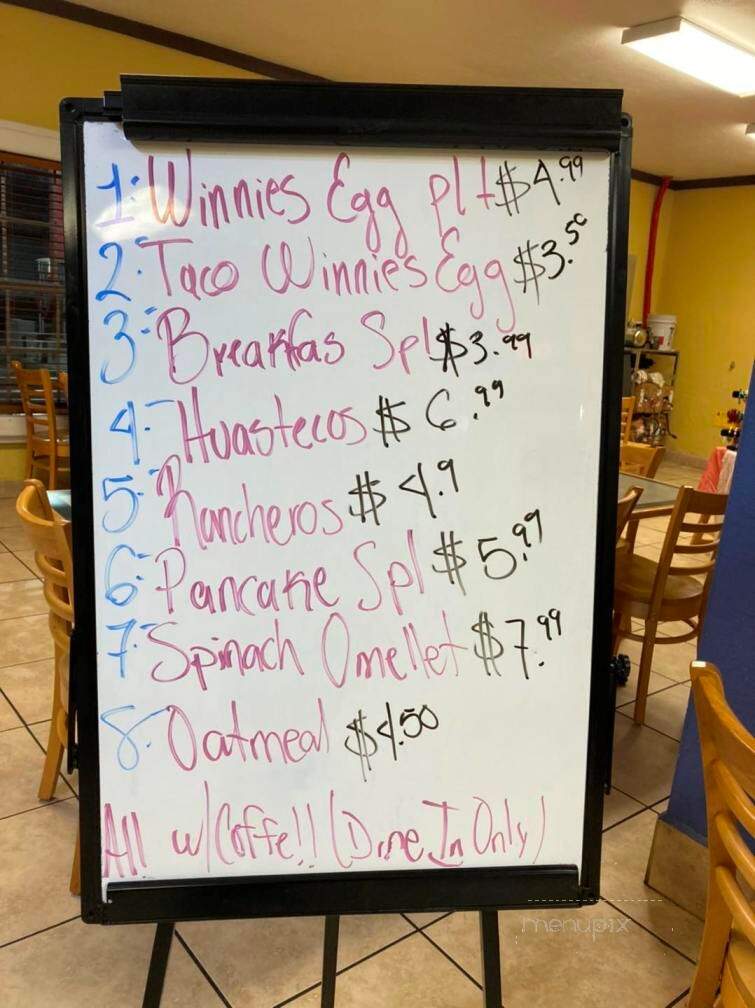 1:- Winnies Egg plt $4.99
2:- Taco Winnies Egg $3.50
3:- Breakfas Spl $3.99
4.- Huastecos $6.99
5:- Rancheros $4.9
6:- Pancake Spl $5.99
7:- Spinach Omellet $7.99
8:- Oatmeal $4.50
All w/Coffe!! (Dine In Only)
menupix